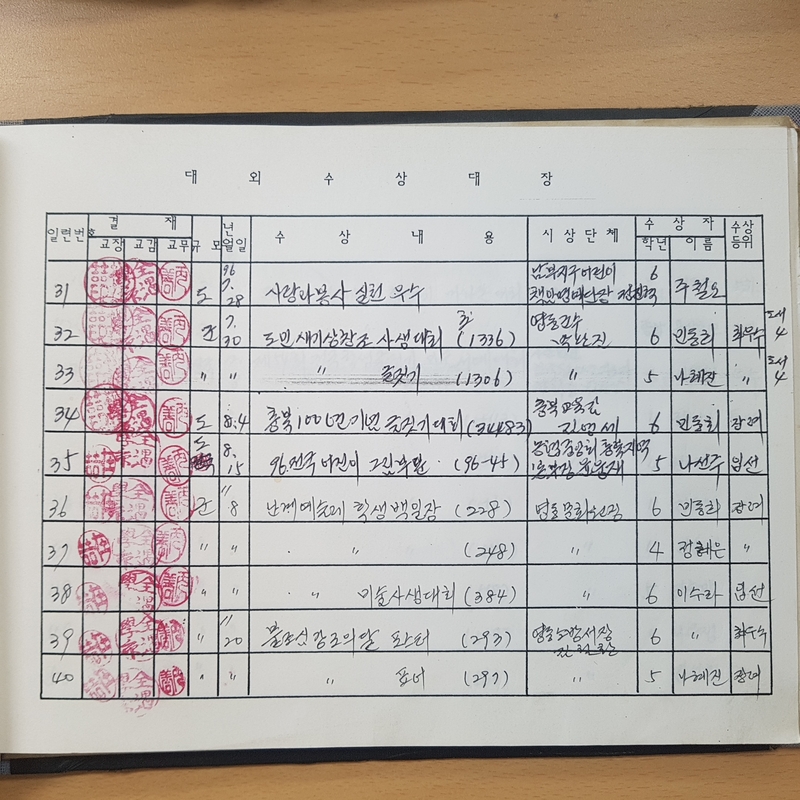 대 외 수 상 대 장
일련번호 결 재 규모 년월일 수 상 내 용 시상단체 수 상 자 수상등위
교장 교감 교무 학년 이름
31 도 96 7. 28 사랑과 봉사 실천 우수 남부지구 어린이 6 주철오
32 군 7. 20 도민 새기상창조 사생대회 (1336) 영동군수 6 민동희 최우수 도서 4
33 〃 〃 〃 글짓기 (1306) 〃 5 나혜진 〃 도서 4
34 도 8.4 충북 100년 기념 글짓기대회 (34483) 충북교육감 6 민동희 장려
35 도 8. 15 96. 전국 어린이 그림 (96-45) 5 나선주 입선
36 군 〃 8 난계예술제 학생 백일장 (228) 영동문화원장 6 민동희 장려
37 〃 〃 〃 (248) 〃 4 정혜은 〃
38 〃 〃 〃 미술사생대회 (384) 〃 6 이수라 입선
39 〃 〃 20 불조심 강조의 달 포스터 (293) 영동소방서장 6 〃 최우수
40 〃 〃 〃 표어 (297) 〃 5 나혜진 장려